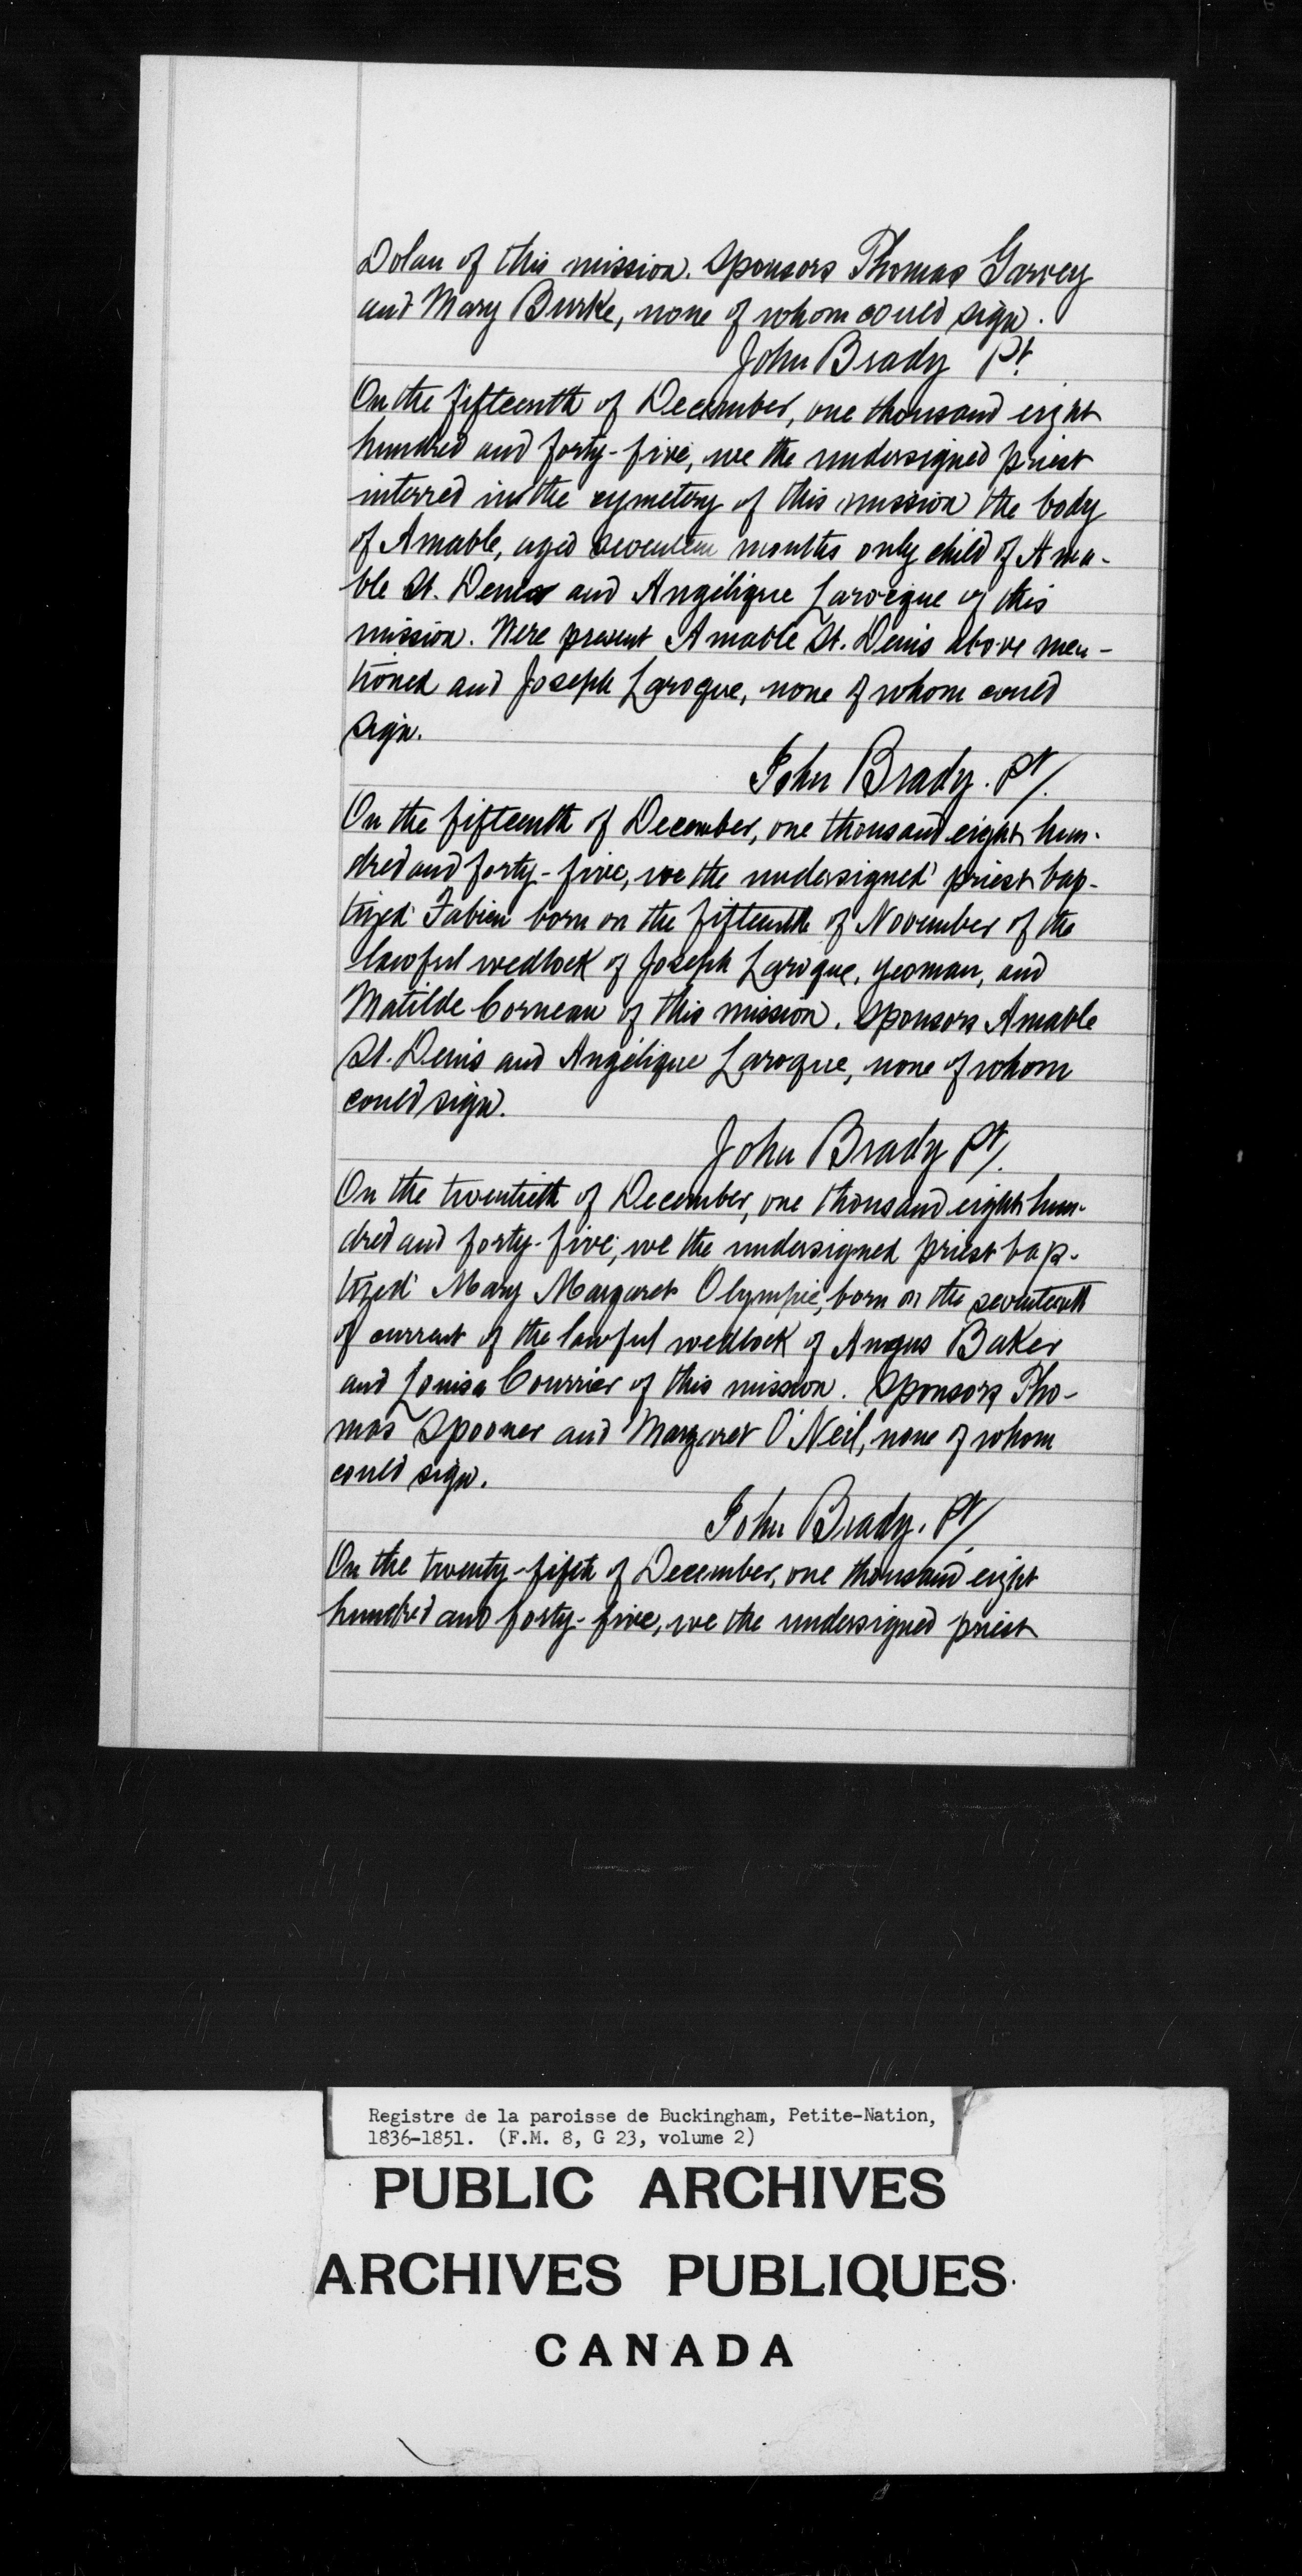 Dolan of this mission. Sponsors Thomas Garvey
and Mary Burke, none of whom could sign.
John Brady Pt.
On the fifteenth of December, one thousand eight
hundred and forty-five, we the undersigned priest
interred in the cymetery of this mission the body
of Amable, aged seventeen months only child of Ama-
ble St. Denis and Angélique Larocque of this
mission. Were present Amable St. Denis above men-
tioned and Joseph Laroque, none of whom could
sign.
John Brady. Pt/.
On the fifteenth of December, one thousand eight hun-
dred and forty-five, we the undersigned priest bap-
tized Fabien born on the fifteenth of November of the
lawful wedlock of Joseph Laroque, yeoman, and
Matilde Corneau of this mission. Sponsors Amable
St. Denis and Angélique Laroque, none of whom
could sign.
John Brady Pt/.
On the twentieth of December, one thousand eight hun-
dred and forty-five, we the undersigned priest bap-
tized Mary Margaret Olympie, born on the seventeenth
of current of the lawful wedlock of Angus Baker
and Louisa Courrier of this mission. Sponsors Tho-
mas Spooner and Margaret O'Neil, none of whom
could sign.
John Brady. Pt/.
On the twenty-fifth of December, one thousand eight
hundred and forty-five, we the undersigned priest
Registre de la paroisse de Buckingham, Petite-Nation,
1836-1851. (F.M. 8, G 23, volume 2)
PUBLIC ARCHIVES
ARCHIVES PUBLIQUES
CANADA